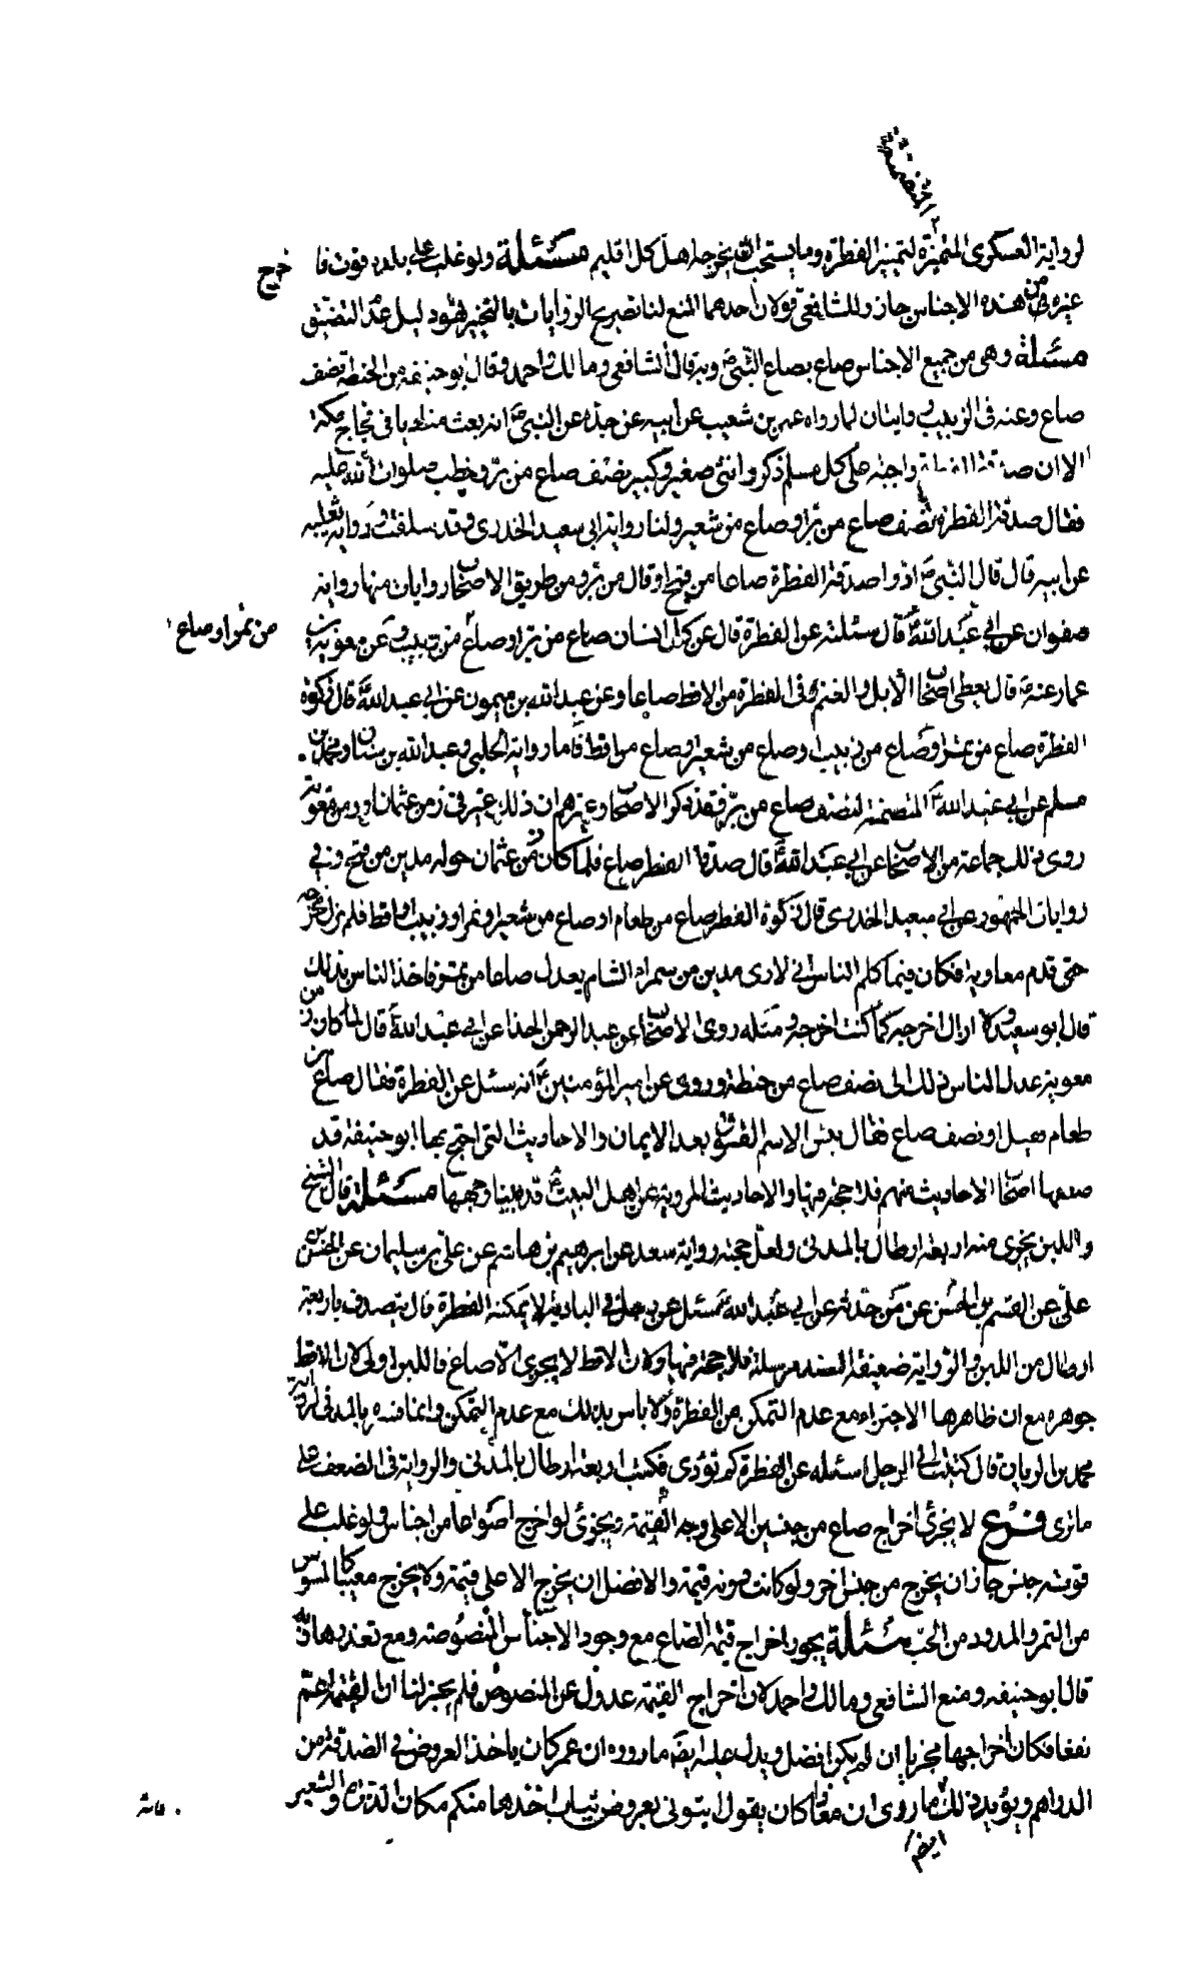 المتضمنة
لرواية العسكرى المتميزة لتمييز الفطرة وما يستحب ان يخرجه اهل كل اقليم مسئلة ولو غلب على بلده قوت فاخرج
غيره من هذه الاجناس جاز وللشافعى قولان احدهما المنع لنا تصريح الروايات بالتخيير فهو دليل عدم التضييق
مسئلة وهى من جميع الاجناس صاع بصاع النبى ص وبه قال الشافعى ومالك واحمد وقال ابو حنيفه من الحنطة نصف
صاع وعنه فى الزبيب روايتان لما رواه عمرو بن شعيب عن ابيه عن جده عن النبى ص انه بعث مناديا فى فجاج مكة
الا ان صدقة الفطرة واجبة على كل مسلم ذكر وانثى صغير وكبير نصف صاع من بر وخطب صلوات الله عليه
فقال صدقة الفطرة نصف صاع من بر او صاع من شعير ولنا رواية ابى سعيد الخدرى وقد سلفت ورواية ثعلبه
عن ابيه قال قال النبى ص ادوا صدقة الفطرة صاعا من قمح او قال من بر ومن طريق الاصحاب روايات منها رواية
صفوان عن ابى عبد الله ع قال سئلته عن الفطرة قال عن كل انسان صاع من بر او صاع من زبيب وعن معوية بن
من تمر او صاع
عمار عنه ع قال يعطى اصحاب الابل والغنم فى الفطرة من الاقط صاعا وعن عبد الله بن ميمون عن ابى عبد الله ع قال زكوة
الفطرة صاع من تمر او صاع من زبيب او صاع من شعير او صاع من اقط فاما رواية الحلبى وعبد الله بن سنان ومحمد بن
مسلم عن ابى عبد الله ع المتضمنة لنصف صاع من بر فقد ذكر الاصحاب وغيرهم ان ذلك غير فى زمن عثمان او زمن معوية
روى ذلك جماعة من الاصحاب عن ابى عبد الله ع قال صدقة الفطر صاع فلما كان زمن عثمان حوله مدين من قمح وفى
روايات الجمهور عن ابى سعيد الخدرى قال زكوة الفطر صاع من طعام او صاع من شعير او تمر او زبيب او اقط فلم نزل نخرجه
حتى قدم معاوية فكان فيما كلم الناس انى لارى مدين من سمراء الشام يعدل صاعا من تمر فاخذ الناس بذلك
قال ابو سعيد لا ازال اخرجه كما كنت اخرجه ومثله روى الاصحاب عن عبد الرحمن الحذا عن ابى عبد الله ع قال لما كان زمن
معوية عدل الناس ذلك الى نصف صاع من حنطة وروى عن امير المؤمنين ع انه سئل عن الفطرة فقال صاع من
طعام فقيل او نصف صاع فقال بئس الاسم الفسوق بعد الايمان والاحاديث التى احتج بها ابو حنيفة قد
ضعفها اصحاب الاحاديث منهم فلا حجة فيها والاحاديث المروية عن اهل البيت ع قد بينا وجهها مسئلة قال الشيخ
واللبن يجزى منه اربعة ارطال بالمدنى ولعل حجته رواية سعد عن ابرهيم بن هاشم عن على بن سليمان عن الحسن بن
على عن القسم بن الحسن عن من حدثه عن ابى عبد الله ع سئل عن رجل فى البادية لا يمكنه الفطرة قال يتصدق باربعة
ارطال من اللبن والرواية ضعيفة السند مرسلة فلا حجة فيها ولان الاقط لا يجزى الا صاع فاللبن اولى لان الاقط
جوهره مع ان ظاهرها الاجتزاء مع عدم التمكن من الفطرة ولا باس بذلك مع عدم التمكن وانما فسره بالمدنى لرواية
محمد بن الريان قال كتبت الى الرجل اسئله عن الفطرة كم تؤدى فكتب اربعة ارطال بالمدنى والرواية فى الضعف على
ما ترى فرع لا يجزى اخراج صاع من جنسين الا على وجه القيمة ويجزى لو اخرج اصواعا من اجناس ولو غلب على
قوته جنس جاز ان يخرج من جنس اخر ولو كانت دونه قيمة والافضل ان يخرج الاعلى قيمة ولا يخرج معيبا كالمسوس
من التمر والمدود من الحب مسئلة يجوز اخراج قيمة الصاع مع وجود الاجناس المنصوصة ومع تعذرها وبه
قال ابو حنيفه ومنع الشافعى ومالك واحمد لان اخراج القيمة عدول عن النصوص فلم يجز لنا ان القيمة اعم
نفعا فكان اخراجها مجزيا ان لم يكن افضل ويدل عليه ايضا ما رووه ان عمر كان ياخذ العروض فى الصدقة من
الدراهم ويؤيد ذلك ما روى ان معاذا كان يقول ايتونى بعروض ثياب اخذها منكم مكان الذرة والشعير
ايضا
فانه